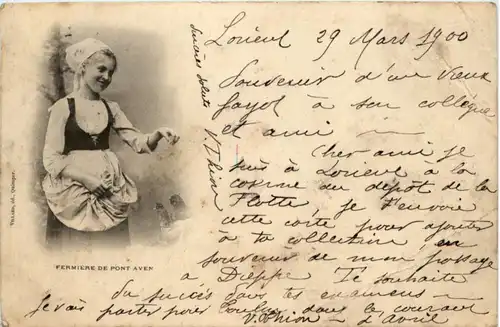 Lorient 29 Mars 1900
Souvenir d'un vieux
fayot à son collègue
et ami
Cher ami je
suis à Lorient à la
caserne au dépôt de la
Flotte, je t'envoie
cette carte pour ajouter
à ta collection en
souvenir de mon passage
à Dieppe Je souhaite
du succès dans tes examens
je vais partir pour dans le courant
d'avril
V. Thion
FERMIÈRE DE PONT AVEN